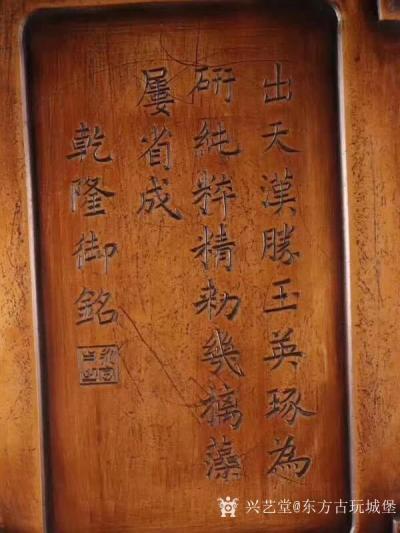 出天漢勝玉英琢為
研純粹精勑幾摛藻
屢省成
乾隆御銘
兴艺堂@东方古玩城堡